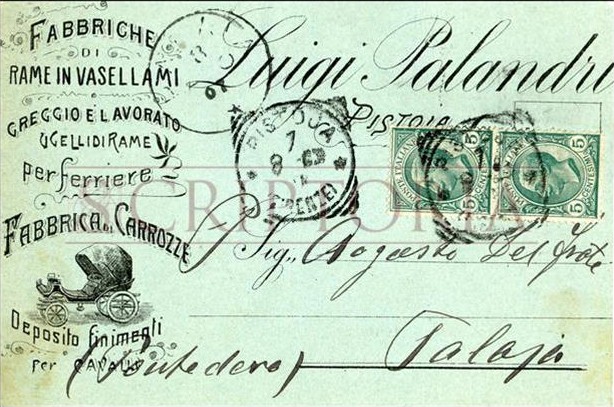 FABBRICHE
DI
RAME IN VASELLAMI
GREGGIO E LAVORATO
UGELLI DI RAME
per ferriere
FABBRICA DI CARROZZE
Deposito finimenti
per CAVALLI
Luigi Palandri
PISTOIA
PISTOJA
7
8
(FIRENZE)
POSTE ITALIANE
5
CENT.
5
5
SCRIPTORIA
Sig. Augusto Del Prete
Palaja
(Pontedera)